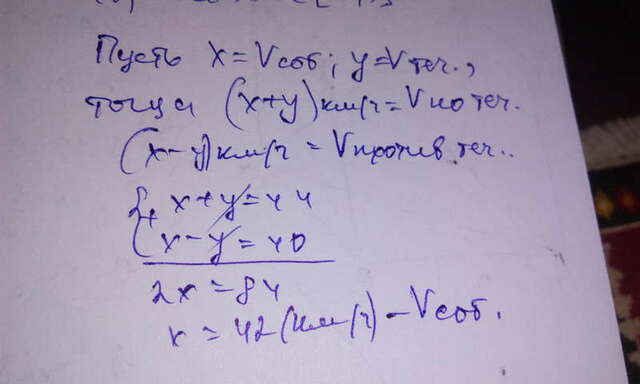 Пусть x = Vсоб; y = Vтеч.,
тогда (x+y) км/ч = Vпо теч.
(x-y) км/ч = Vпротив теч..
{+ x+y=44
x-y=40
2x=84
x=42 (км/ч) - Vсоб.